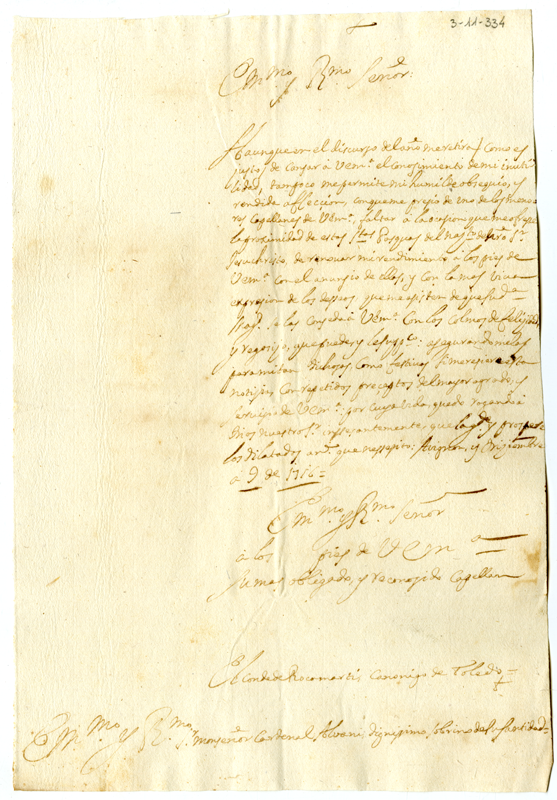 3-11-334
Em.mo y R.mo Señor:
Aunque en el discurso del año me retira/ Como es
justo/ de cansar à V Em.ª el conosimiento de mi inuti
lidad, tampoco me permite mi humilde obsequio, y
rendida affeccion, con que me presio de uno de los meno
res Capellanes de V Em.ª, faltar à la ocasion que me ofrece
la proximidad de estas S.tas Pasquas del Nas.to de nro S.r
Jesuchristo, de renovar mi rendimiento à los pies de
V Em.ª con el anunsio de ellas, y con la mas viva
expresion de los desseos que me asisten de que su d.ª
Mag.d se las conseda à V Em.ª Con los Colmos de felisidad,
y regosijo, que puede, y le supp.co: asegurandomelas
para mi tan dichosas, Como festivas, si meresiere esta
notisia Con repetidos preceptos del mayor agrado, y
servisio de V Em.ª: por Cuya vida quedo rogando à
Dios nuestro S.r insesantemente, que la g.de y prospere
los dilatados an.s que nessesito: Avignon, y Diziembre
à 9 de 1716=
Em.mo y R.mo Señor
à los pies de V Em.ª
su mas obligado, y reconosido Capellan
El Conde de Rocamartis Canonigo de Toledo=
Em.mo y R.mo S.r Monseñor Cardenal Alvani, dignissimo sobrino de Su Santidad=